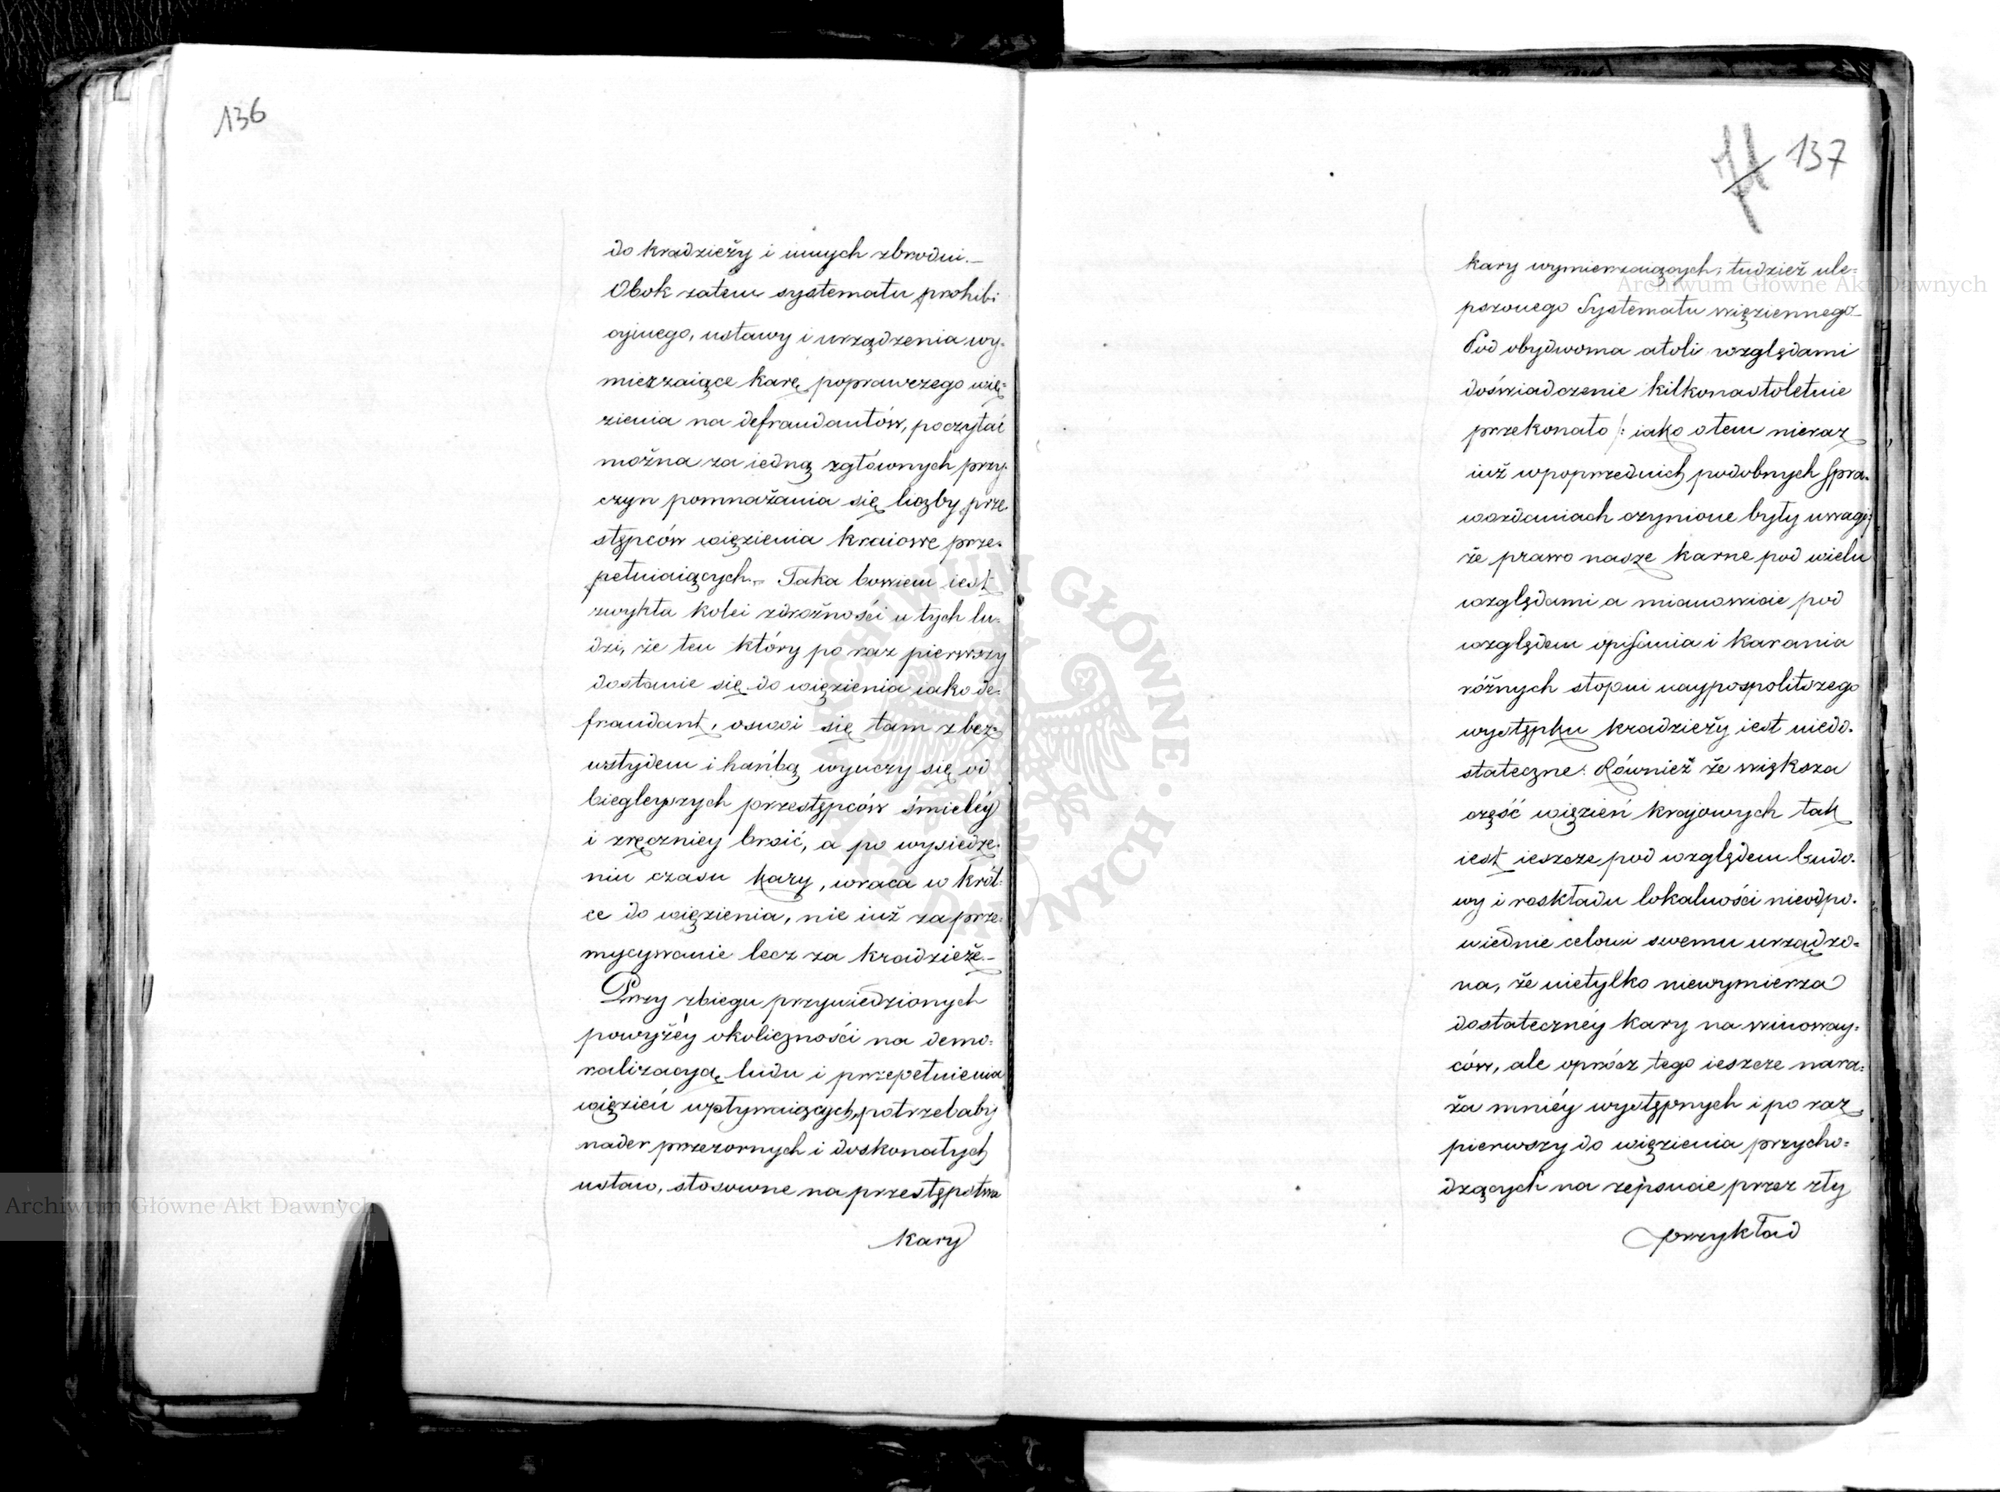 136
do kradzieży i innych zbrodni.—
Obok zatem systematu prohibi
cyjnego, ustawy i urządzenia wy-
mierzaiące karę poprawczego wię-
zienia na defraudantów, poczytać
można za iedną zgłównych przy-
czyn pomnażania się liczby prze
stępców więzienia kraiowe prze-
pełniaiących.— Taka bowiem iest
zwykła kolei zdrożności u tych lu-
dzi, że ten który po raz pierwszy
dostanie się do więzienia iako de-
fraudant, oswoi się tam z bez
wstydem i hańbą wyuczy się od
bieglejszych przestępców śmieléy
i zręczniey broić, a po wysiedze-
niu czasu kary, wraca w krót-
ce do więzienia, nie iuż za prze-
mycywanie lecz za kradzieże.—
Przy zbiegu przywiedzionych
powyżéy okoliczności na demo-
ralizacyą ludu i przepełnienia
więzień wpływaiących, potrzebaby
nader przezornych i doskonałych
ustaw, stosowne na przestępstwa
kary
137
kary wymierzaiących, tudzież ule-
pszonego Systematu więziennego—
Pod obydwoma atoli względami
doświadczenie kilkonastoletnie
przekonało /: iako o tem nieraz
iuż wpoprzednich podobnych Spra-
wozdaniach czynione były uwagi:/
że prawo nasze karne pod wielu
względami a mianowicie pod
względem opisania i karania
różnych stopni naypospolitszego
występku kradzieży iest niedo-
stateczne. Również że większa
część więzień krajowych tak
iest ieszcze pod względem budo-
wy i rozkładu lokalności nieodpo-
wiednie celowi swemu urządzo-
na, że nietylko niewymierza
dostatecznéy kary na winoway-
ców, ale oprócz tego ieszcze nara-
ża mniéy występnych i po raz
pierwszy do więzienia przycho-
dzących na zepsucie przez zły
przykład
Archiwum Główne Akt Dawnych
Archiwum Główne Akt Dawnych
ARCHIWUM GŁÓWNE AKT DAWNYCH